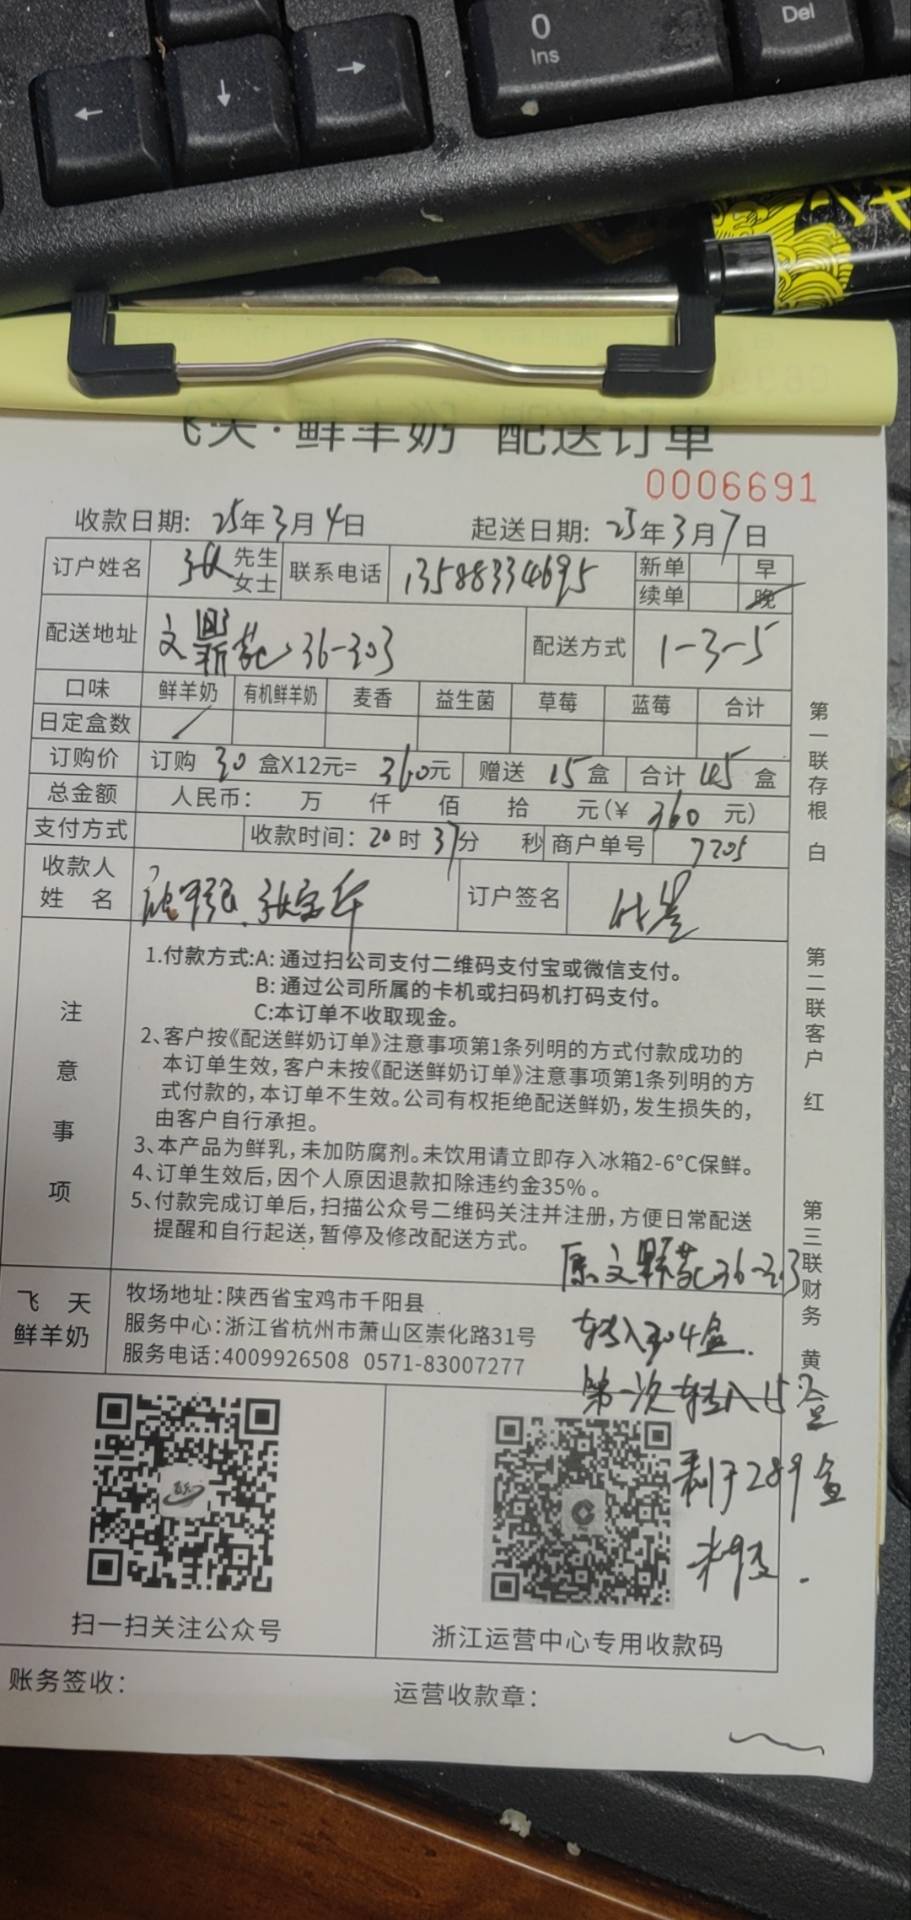 0
Ins
Del
←
↓
→
飞天·鲜羊奶 配送订单
0006691
收款日期: 25年3月4日 起送日期: 25年3月7日
订户姓名 张 先生 女士 联系电话 13588334695 新单 续单 早 晚
配送地址 文鼎苑 36-303 配送方式 1-3-5
口味 鲜羊奶 有机鲜羊奶 麦香 益生菌 草莓 蓝莓 合计
日定盒数
订购价 订购 30 盒X12元= 360元 赠送 15盒 合计 45盒
总金额 人民币: 万 仟 佰 拾 元(¥ 360 元)
支付方式 收款时间: 20时37分 秒 商户单号 7205
收款人
姓 名 订户签名
注意事项
1.付款方式:A: 通过扫公司支付二维码支付宝或微信支付。
B: 通过公司所属的卡机或扫码机打码支付。
C:本订单不收取现金。
2、客户按《配送鲜奶订单》注意事项第1条列明的方式付款成功的
本订单生效,客户未按《配送鲜奶订单》注意事项第1条列明的方
式付款的,本订单不生效。公司有权拒绝配送鲜奶,发生损失的,
由客户自行承担。
3、本产品为鲜乳,未加防腐剂。未饮用请立即存入冰箱2-6°C保鲜。
4、订单生效后,因个人原因退款扣除违约金35%。
5、付款完成订单后,扫描公众号二维码关注并注册,方便日常配送
提醒和自行起送,暂停及修改配送方式。
原文鼎苑36-303
转入304盒.
第一次转入15盒
剩于289盒
飞 天
鲜羊奶
牧场地址:陕西省宝鸡市千阳县
服务中心:浙江省杭州市萧山区崇化路31号
服务电话:4009926508 0571-83007277
扫一扫关注公众号
浙江运营中心专用收款码
账务签收:
运营收款章:
第一联存根 白
第二联客户 红
第三联财务 黄